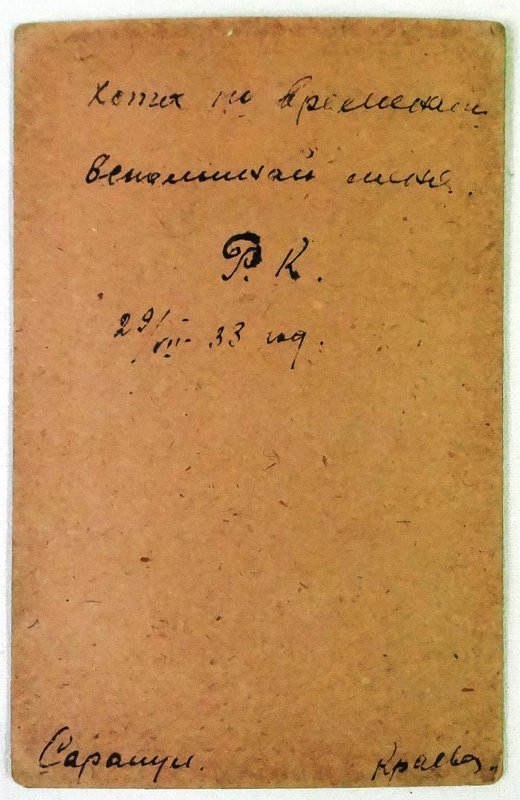 Хотих по временам
вспоминай меня.
Р. К.
29/VII - 33 год.
Сарапул.